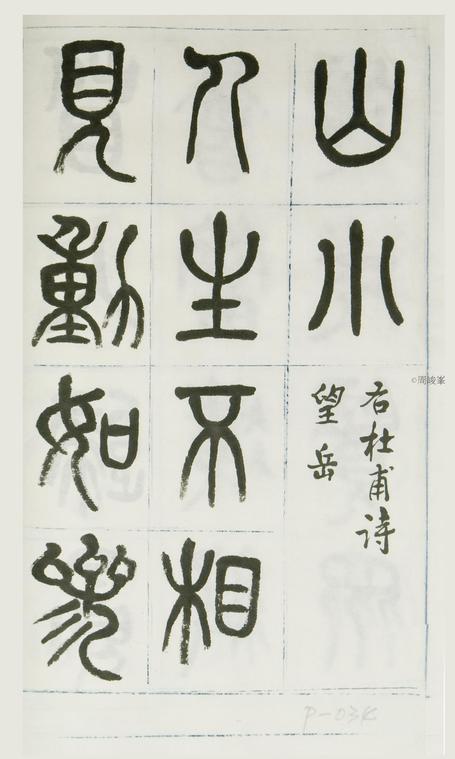 山小
右杜甫诗
望岳
人生不相
見動如參
©周峻峯
P-03K